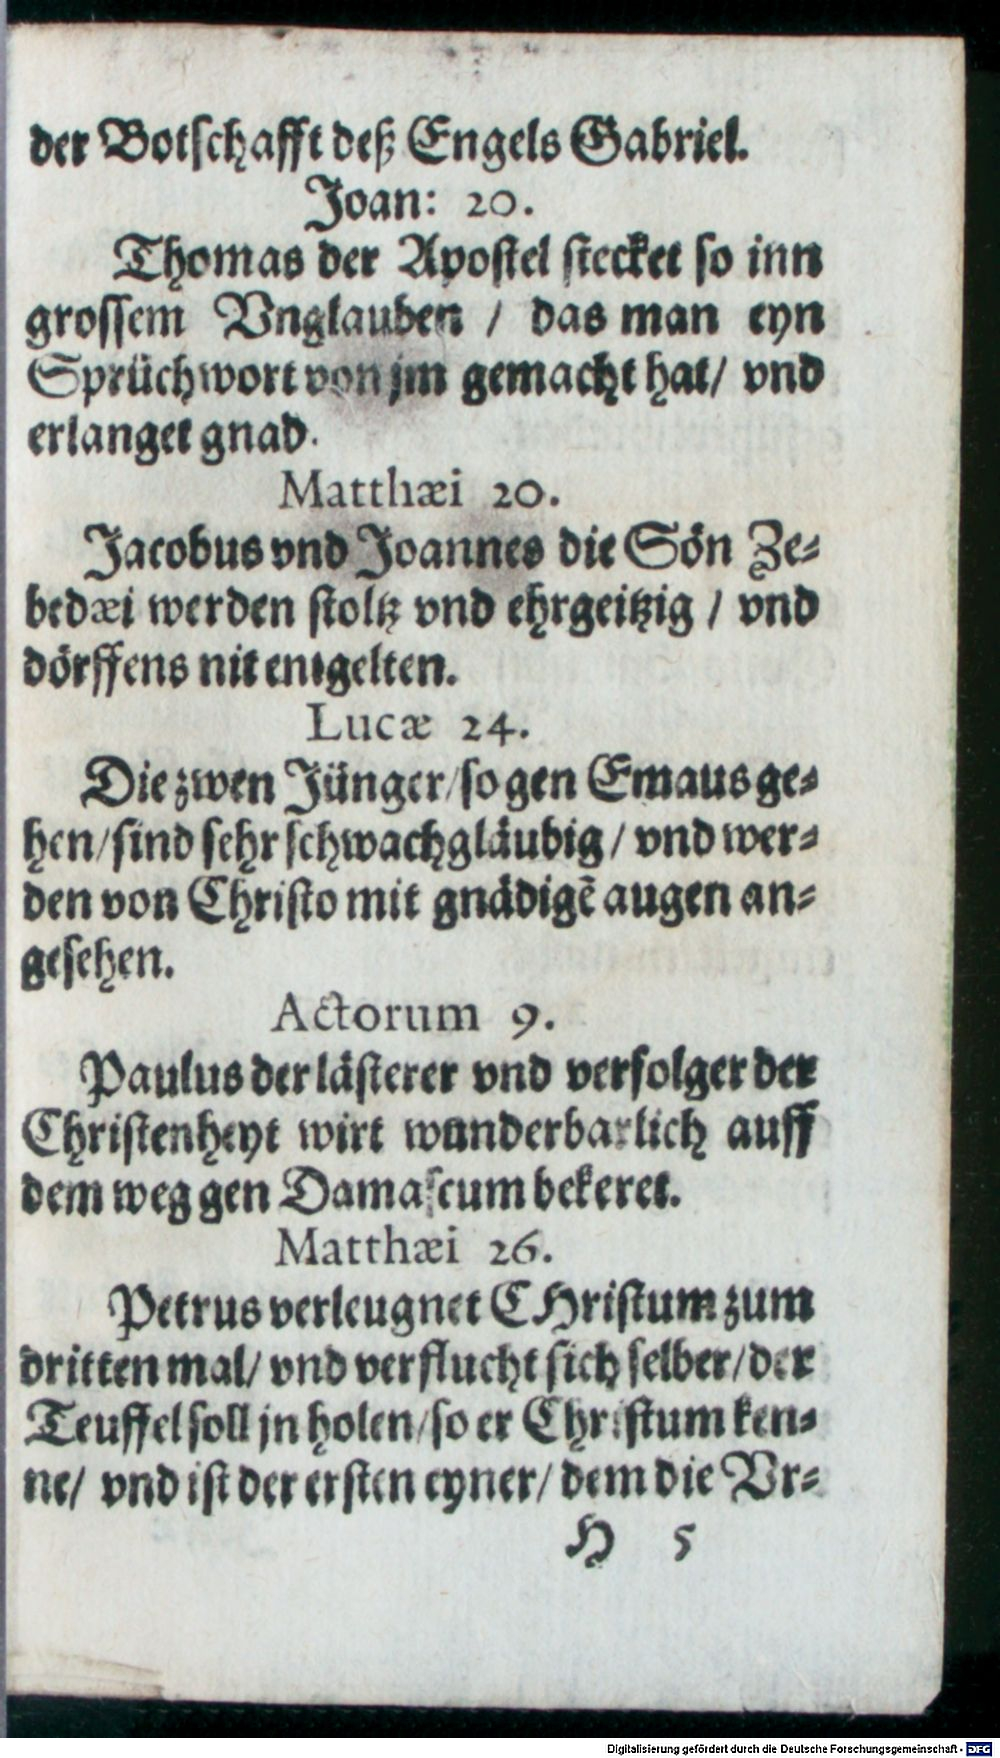 der Botschafft deß Engels Gabriel.
Joan: 20.
Thomas der Apostel stecket so inn
grossem Vnglauben / das man eyn
Sprüchwort von jm gemacht hat/ vnd
erlanget gnad.
Matthæi 20.
Jacobus vnd Joannes die Sön Ze-
bedæi werden stoltz vnd ehrgeitzig / vnd
dörffens nit entgelten.
Lucæ 24.
Die zwen Jünger/so gen Emaus ge-
hen/sind sehr schwachgläubig/ vnd wer-
den von Christo mit gnädigē augen an-
gesehen.
Actorum 9.
Paulus der lästerer vnd verfolger der
Christenheyt wirt wunderbarlich auff
dem weg gen Damascum bekeret.
Matthæi 26.
Petrus verleugnet CHristum zum
dritten mal/ vnd verflucht sich selber/der
Teuffel soll jn holen/so er Christum ken-
ne/ vnd ist der ersten eyner/ dem die Vr-
H 5
Digitalisierung gefördert durch die Deutsche Forschungsgemeinschaft - DFG